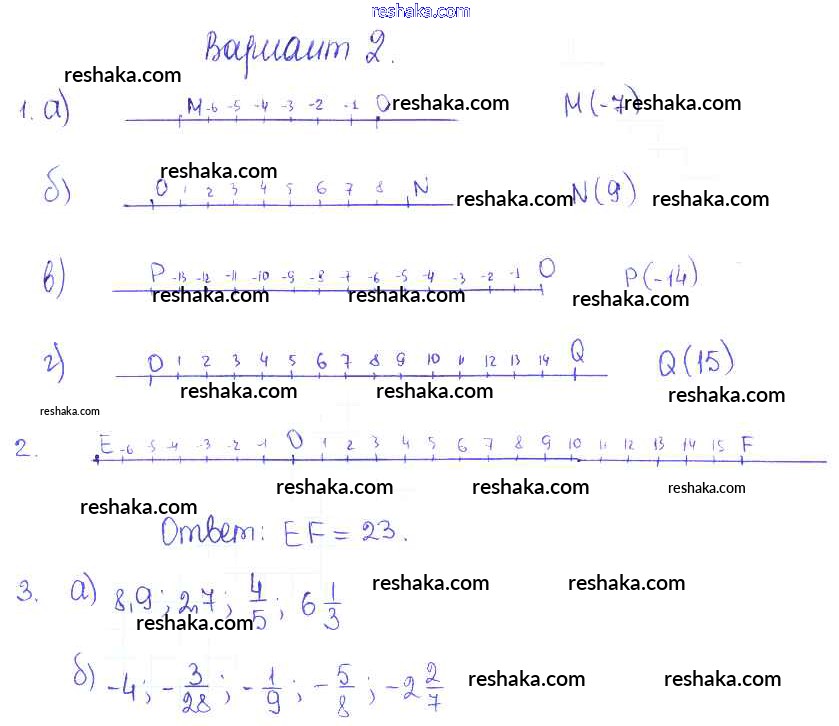 reshaka.com
Вариант 2.
reshaka.com
1. а) M -6 -5 -4 -3 -2 -1 O reshaka.com M(-7) reshaka.com
reshaka.com
б) O 1 2 3 4 5 6 7 8 N reshaka.com N(9) reshaka.com
в) P -13 -12 -11 -10 -9 -8 -7 -6 -5 -4 -3 -2 -1 O P(-14)
reshaka.com reshaka.com reshaka.com
г) O 1 2 3 4 5 6 7 8 9 10 11 12 13 14 Q Q(15)
reshaka.com reshaka.com reshaka.com
reshaka.com
2. E -6 -5 -4 -3 -2 -1 O 1 2 3 4 5 6 7 8 9 10 11 12 13 14 15 F
reshaka.com reshaka.com reshaka.com
reshaka.com
Ответ: EF = 23.
3. а) 8,9; 2,7; 4/5; 6 1/3 reshaka.com reshaka.com
reshaka.com
б) -4; -3/28; -1/9; -5/8; -2 2/7 reshaka.com reshaka.com